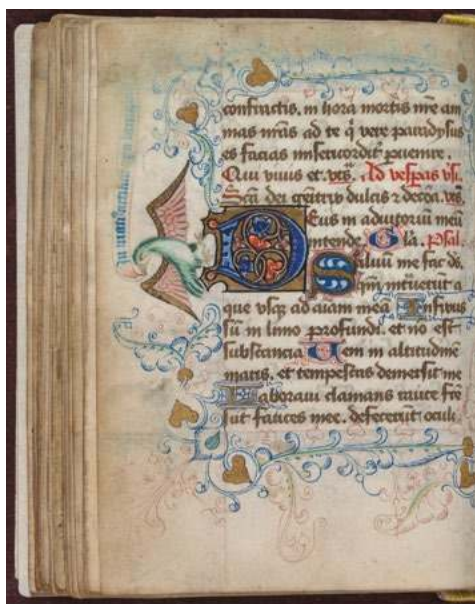 confractis. in hora mortis nre ani
mas nras ad te q̇ vere paradysus
es facias misericordit᷑ puenire.
Qui viuis et. vꝭs. Ad vesperas vsi.
Sca dei dulcis 2 decoꝛa. vꝭs.
Deus in adiutoriū meū
intende. Gla. Psal
Saluū me fac ds.
qm̄ intrauerūt a
que vsq; ad aiam meā Infixus
sū in limo profundi. et no est
substancia Veni in altitudinē
maris. et tempestas demersit me
Laboraui clamans rauce fcē
sūt fauces mee. defecerūt oculi